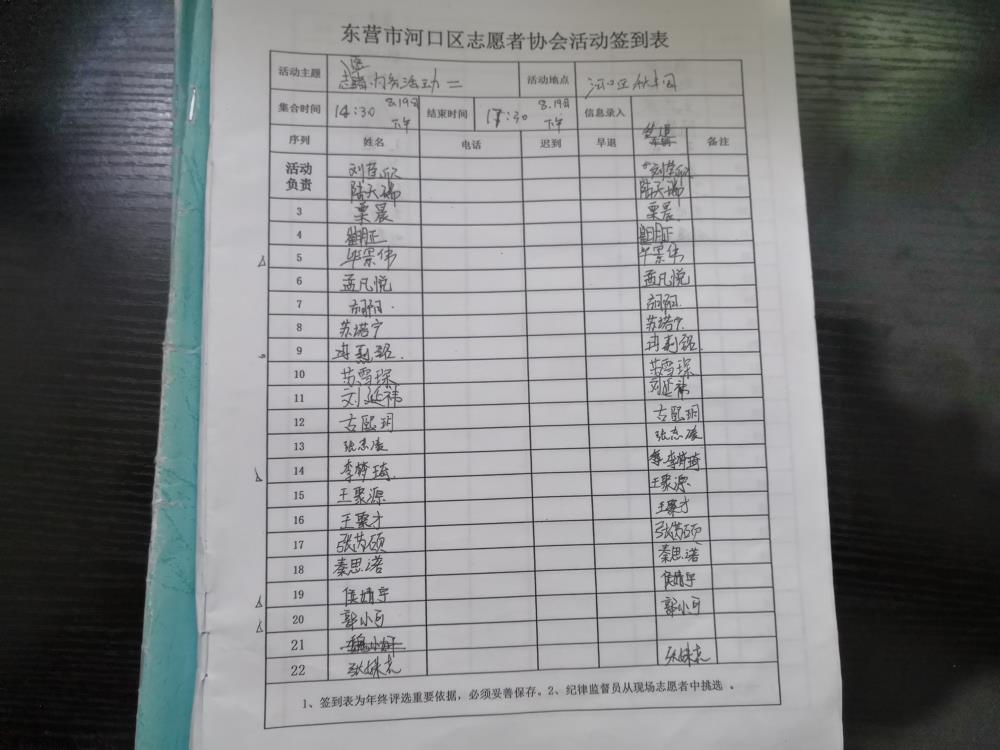 东营市河口区志愿者协会活动签到表
活动主题 活动二 活动地点 河口区
集合时间 14:30 8.19日 下午 结束时间 17:30 8.19日 下午 信息录入
序列 姓名 电话 迟到 早退 签退 备注
活动 刘莹欣 刘莹欣
负责 陆天瑞 陆天瑞
3 栗晨 栗晨
4
5 毕景伟 毕景伟
6 孟凡悦 孟凡悦
7
8 苏塔宁 苏塔宁
9
10 苏雪琛 苏雪琛
11 刘延祎 刘延祎
12 古熙玥 古熙玥
13 张志凌 张志凌
14 李梦琦 李梦琦
15 王聚源 王聚源
16 王聚才 王聚才
17 张芮硕 张芮硕
18 秦思诺 秦思诺
19 侯婧宇 侯婧宇
20 郭小可 郭小可
21
22 张姝
1、签到表为年终评选重要依据，必须妥善保存。2、纪律监督员从现场志愿者中挑选 。